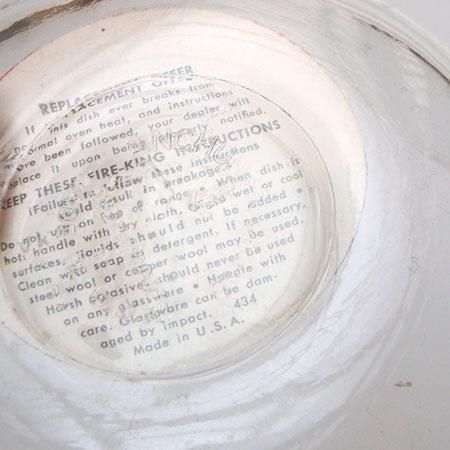 REPLACEMENT OFFER
If this dish ever breaks from
normal oven heat, and instructions
have been followed, your dealer will
replace it upon being properly notified.
KEEP THESE FIRE-KING INSTRUCTIONS
(Failure to follow these instructions
could result in breakage.)
Do not use on top of range. When dish is
hot: handle with dry cloth, avoid wet or cool
surfaces, liquids should not be added •
Clean with soap or detergent. If necessary,
steel wool or copper wool may be used.
Harsh abrasives should never be used
on any glassware • Handle with
care. Glassware can be dam-
aged by impact. 434
Made in U.S.A.